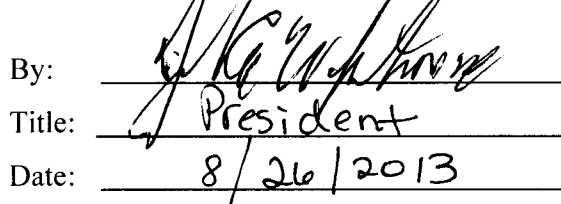 By:
Title: President
Date: 8/26/2013